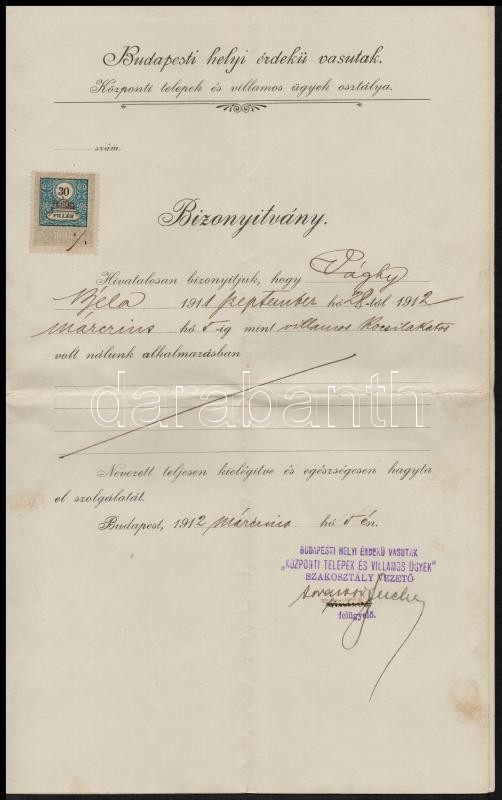 Budapesti helyi érdekü vasutak.
Központi telepek és villamos ügyek osztálya.
szám.
30
FILLÉR
Bizonyitvány.
Hivatalosan bizonyitjuk, hogy Vághy
Béla 1911 szeptember hó 28-tól 1912
március hó 5-ig mint villamos kocsilakatos
volt nálunk alkalmazásban
darabanth
Nevezett teljesen kielégitve és egészségesen hagyta
el szolgálatát.
Budapest, 1912 március hó 5-én.
BUDAPESTI HELYI ÉRDEKŰ VASUTAK
„KÖZPONTI TELEPEK ÉS VILLAMOS ÜGYEK"
SZAKOSZTÁLY VEZETŐ
felügyelő.